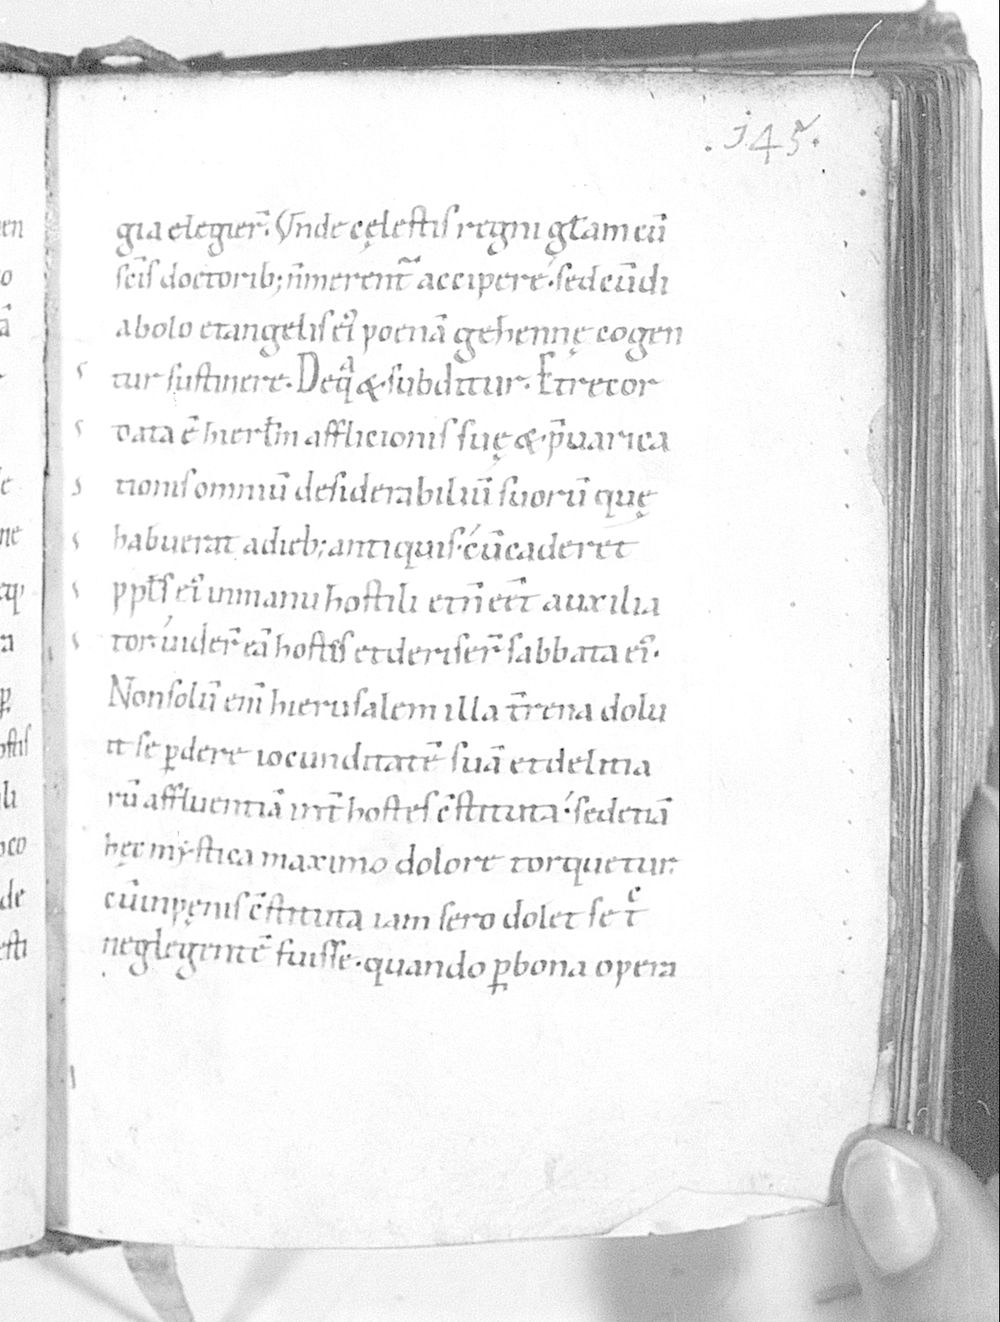 .145.
gia elegier̃. Vnde cęlestis regni gl̃am cũ
sc̃is doctorib; ñ merent̃ accipere. sed cũ di
abolo et angelis ei᷒ poenã gehennę cogen
tur sustinere. De q̃ & subditur. Et recor
data ẽ hierl̃m afflicionis suę & p̃uarica
tionis omniũ desiderabiliũ suorũ quę
habuerat a dieb; antiquis. cũ caderet
ppl̃s ei᷒ in manu hostili et ñ eēt auxilia
tor. uider̃ eã hostes et deriser̃ sabbata ei᷒.
Non solũ em̃ hierusalem illa t̃rena dolu
it se ꝑdere iocunditatẽ suã et delitia
rũ affluentiã int̃ hostes c̃stituta. sed etiã
hęc mystica maximo dolore torquetur.
cũ in pęnis c̃stituta iam sero dolet se t̃c
neglegentẽ fuisse. quando ꝑ bona opera